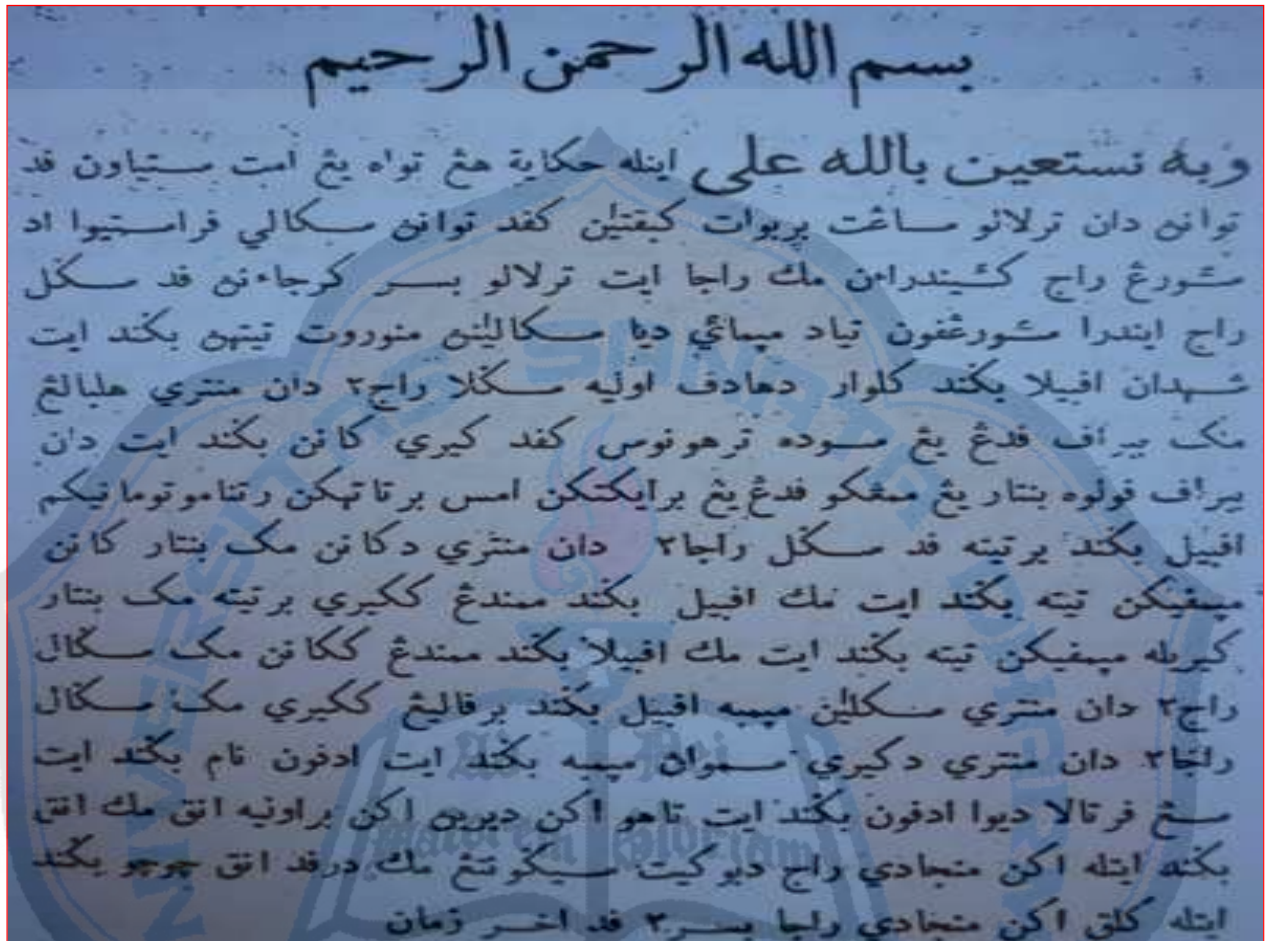 بسم الله الرحمن الرحيم
وبه نستعين بالله على اينله حكاية هڠ تواه يڠ امت ستياون فد
توانڽ دان ترلالو ساڠت بربوات كبقتين كفد توانڽ سكالي فراستيوا اد
سئورڠ راج كئيندراءن مك راجا ايت ترلالو بسر كرجاءنڽ فد سكل
راج ايندرا سئورڠفون تياد ميمائي ديا سكالينڽ منوروت تيتهڽ بڬند ايت
شهدان افبيلا بڬند كلوار دهادف اوليه سكلا راج٢ دان منتري هلبالڠ
مك بيراف فدڠ يڠ سوده ترهونوس كفد كيري كانن بڬند ايت دان
بيراف فولوه بنتار يڠ ممڠكو فدڠ يڠ برايكتكن امس برتاتهكن رتناموتومانيكم
افبيل بڬند برتيته فد سكل راجا٢ دان منتري دكانن مك بنتار كانن
ميمفيكن تيته بڬند ايت مك افبيل بڬند ممندڠ ككيري برتيته مك بنتار
كيريله ميمفيكن تيته بڬند ايت مك افبيلا بڬند ممندڠ ككانن مك سكال
راج٢ دان منتري سكلين ميمبه افبيل بڬند برفاليڠ ككيري مك سكال
راجا٢ دان منتري دكيري سموان ميمبه بڬند ايت ادفون نام بڬند ايت
سڠ فرتالا ديوا ادفون بڬند ايت تاهو اكن ديرين اكن براوليه انق مك انق
بڬند ايتله اكن منجادي راج دبوكيت سيكونتڠ مك درفد انق چوچو بڬند
ايتله كلق اكن منجادي راجا بسر٢ فد اخر زمان
UNIVERSITAS SANATA DHARMA
Ad Dei
Maiorem Gloriam